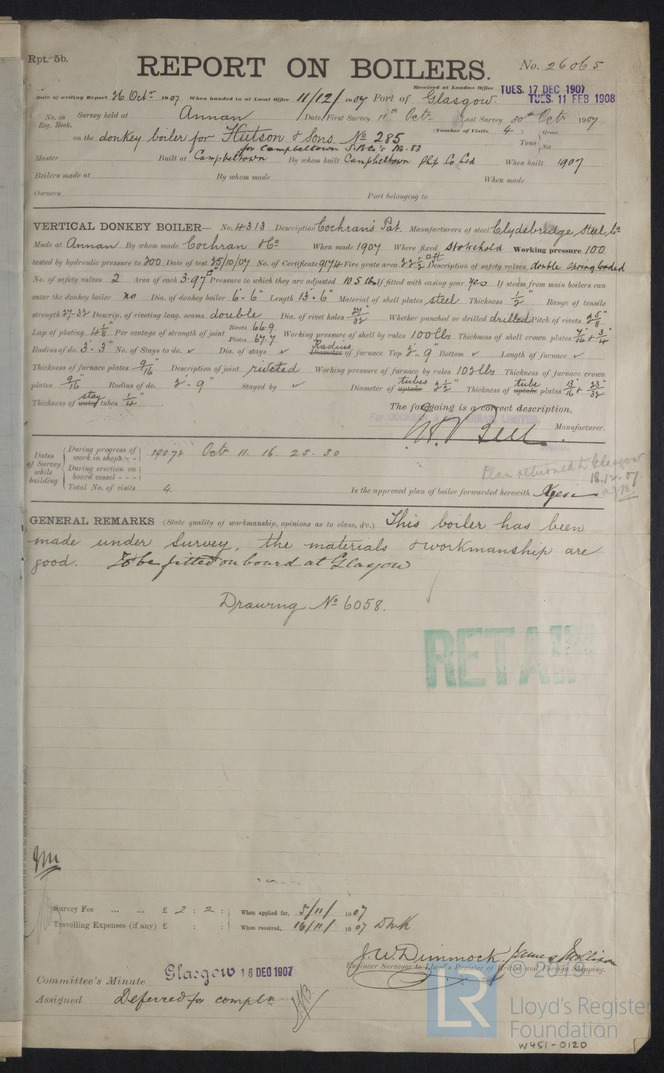 Rpt. 5b.
REPORT ON BOILERS.
No. 26065
Received at London Office TUES. 17 DEC 1907
TUES. 11 FEB 1908
Date of writing Report 26 Octr 1907 When handed in at Local Office 11/12/1907 Port of Glasgow
No. in Reg. Book. Survey held at Annan Date, First Survey 11th Oct. Last Survey 30th Oct 1907
(Number of Visits 4)
on the donkey boiler for Hutson & Sons. No 285
for Campbeltown S.B. Co's No. 83
Tons { Gross Net
Master Built at Campbeltown By whom built Campbeltown Shp Co Ltd When built 1907
Boilers made at By whom made When made
Owners Port belonging to
VERTICAL DONKEY BOILER— No. 4313 Description Cochran's Pat. Manufacturers of steel Clydebridge Steel Co
Made at Annan By whom made Cochran & Co When made 1907 Where fixed Stokehold Working pressure 100
tested by hydraulic pressure to 200 Date of test 25/10/07 No. of Certificate 9174 Fire grate area 22½ □ft Description of safety valves double spring loaded
No. of safety valves 2 Area of each 3.97 □" Pressure to which they are adjusted 105 lbs If fitted with easing gear yes If steam from main boilers can
enter the donkey boiler no Dia. of donkey boiler 6'-6" Length 13'-6" Material of shell plates steel Thickness ½" Range of tensile
strength 27-32 Descrip. of riveting long. seams double Dia. of rivet holes 27/32" Whether punched or drilled drilled Pitch of rivets 2 5/8"
Lap of plating 4 1/8" Per centage of strength of joint Rivets 66.9 Plates 67.7 Working pressure of shell by rules 100 lbs Thickness of shell crown plates 9/16" & 3/4"
Radius of do. 3'-3" No. of Stays to do. ✓ Dia. of stays ✓ Radius Diameter of furnace Top 2'-9" Bottom ✓ Length of furnace ✓
Thickness of furnace plates 9/16" Description of joint riveted Working pressure of furnace by rules 102 lbs Thickness of furnace crown
plates 9/16" Radius of do. 2'-9" Stayed by ✓ Diameter of tubes uptake 2½" Thickness of tube uptake plates 13/16" & 23/32"
Thickness of stay water tubes ¼"
The foregoing is a correct description,
Manufacturer.
Dates of Survey while building
During progress of work in shops - - 1907: Oct 11. 16. 25. 30
During erection on board vessel - - -
Total No. of visits 4.
Plan returned to Glasgow
18.12.07
Is the approved plan of boiler forwarded herewith Yes
GENERAL REMARKS (State quality of workmanship, opinions as to class, &c.) This boiler has been
made under Survey, the materials & workmanship are
good. To be fitted on board at Glasgow
Drawing No 6058.
RETAIN
Survey Fee ... ... £ 2 : 2 : When applied for, 5/11/1907
Travelling Expenses (if any) £ : : When received, 16/11/1907
J. W. Dimmock James Mollison
Engineer Surveyor to Lloyd's Register of British and Foreign Shipping.
Committee's Minute Glasgow 16 DEC 1907
Assigned Deferred for compln
LR
© 2019
Lloyd's Register
Foundation
W451-0120